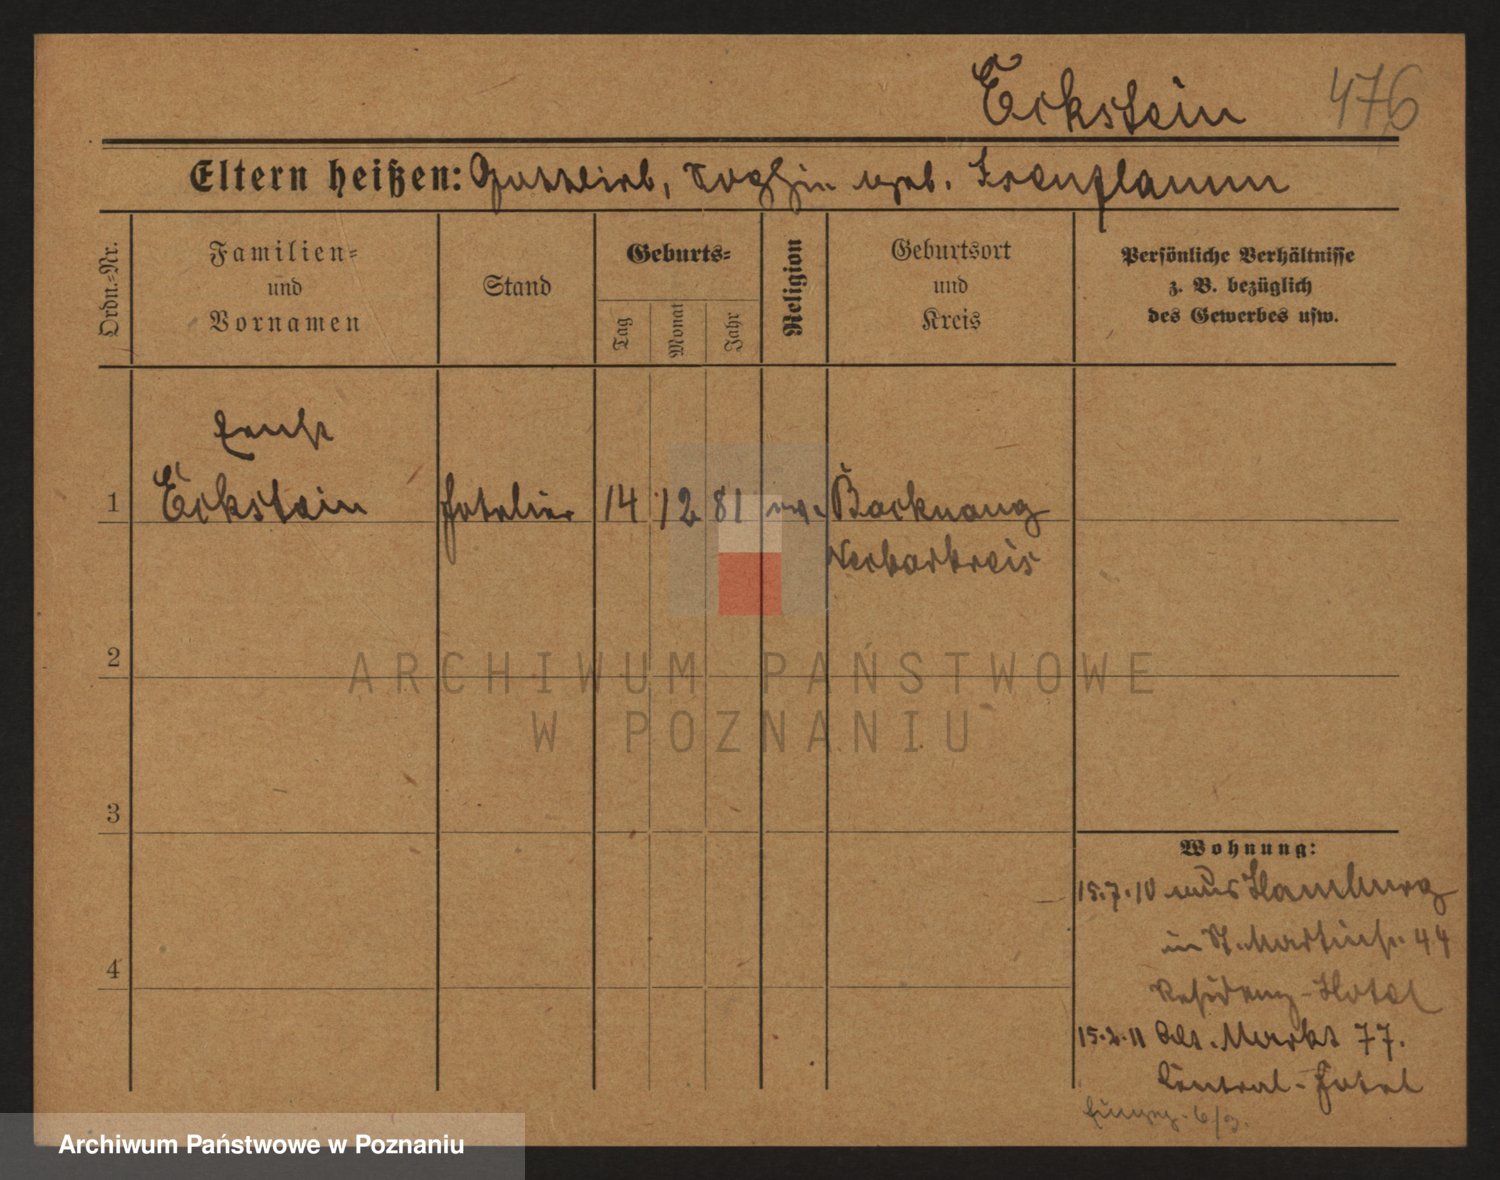 Eckstein 476
Eltern heißen: Gottlieb, geb.
Ordn.-Nr.
Familien-
und
Vornamen
Stand
Geburts-
Tag
Monat
Jahr
Religion
Geburtsort
und
Kreis
Persönliche Verhältnisse
z. B. bezüglich
des Gewerbes usw.
Ernst
1 Eckstein Hotelier 14 12 81 ev. Backnang
Neckarkreis
2
3
4
Wohnung:
15.7.10 aus Hamburg
in St. Martinstr. 44
Residenz-Hotel
15.2.11 Alt. Markt 77.
Central-Hotel
6/3.
ARCHIWUM PAŃSTWOWE
W POZNANIU
Archiwum Państwowe w Poznaniu